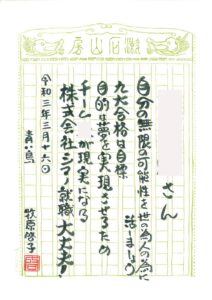 漱石山房
さん
自分の無限の可能性を世の為人の為に
活〜しましょう
九大合格は目標
目的は夢を実現させるため
チーム が現実になる
株式会社シマノ就職大丈夫!
令和三年三月十六日
青い鳥
牧原啓子